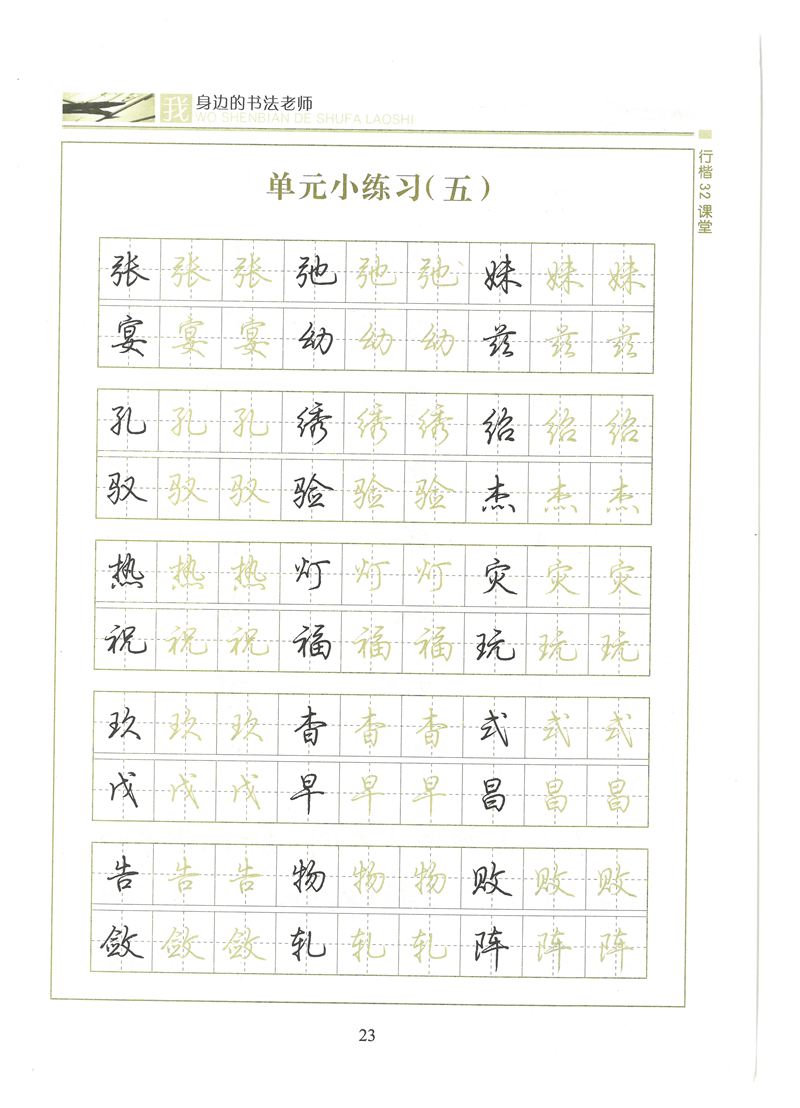 我 身边的书法老师
WO SHENBIAN DE SHUFA LAOSHI
行楷32课堂
单元小练习(五)
张 张 张 弛 弛 弛 妹 妹 妹
宴 宴 宴 幼 幼 幼 兹 兹 兹
孔 孔 孔 绣 绣 绣 绍 绍 绍
驭 驭 驭 验 验 验 杰 杰 杰
热 热 热 灯 灯 灯 灾 灾 灾
祝 祝 祝 福 福 福 玩 玩 玩
玖 玖 玖 杳 杳 杳 式 式 式
戊 戊 戊 早 早 早 昌 昌 昌
告 告 告 物 物 物 败 败 败
敛 敛 敛 轧 轧 轧 阵 阵 阵
23